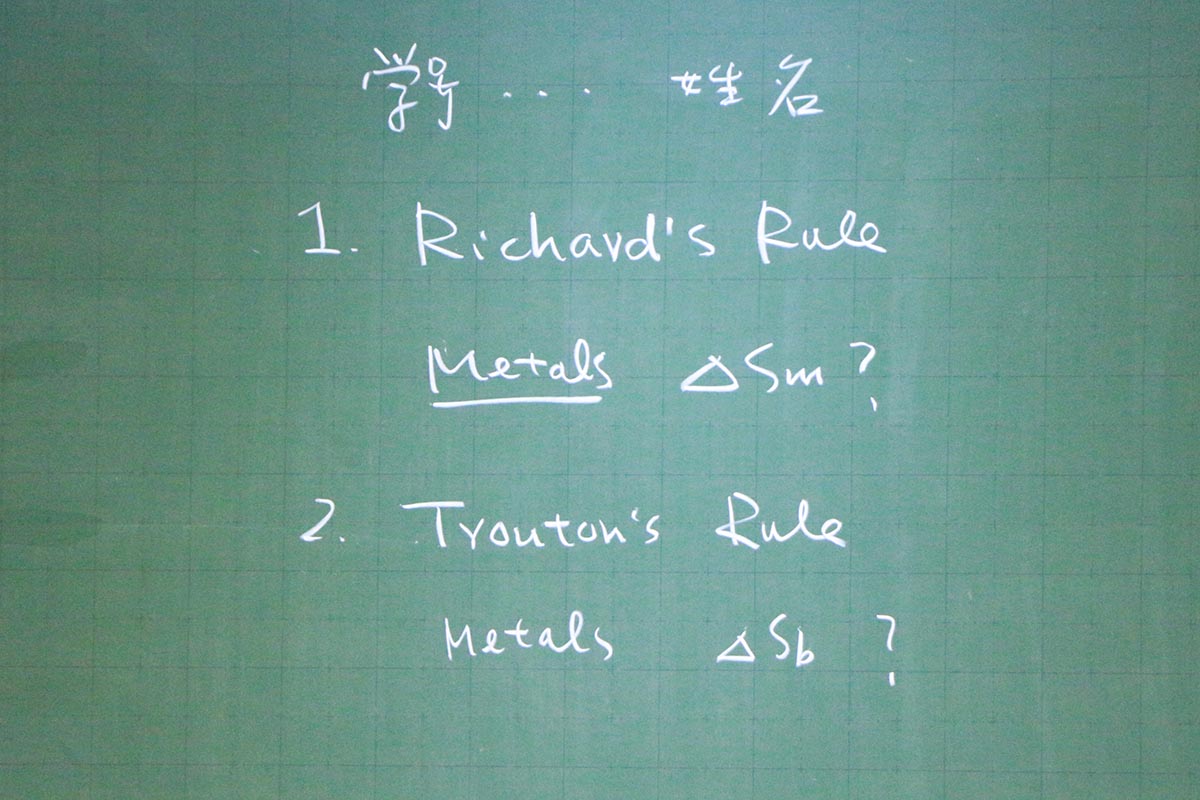 学号 ... 姓名
1. Richard's Rule
Metals △Sm?
2. Trouton's Rule
Metals △Sb ?